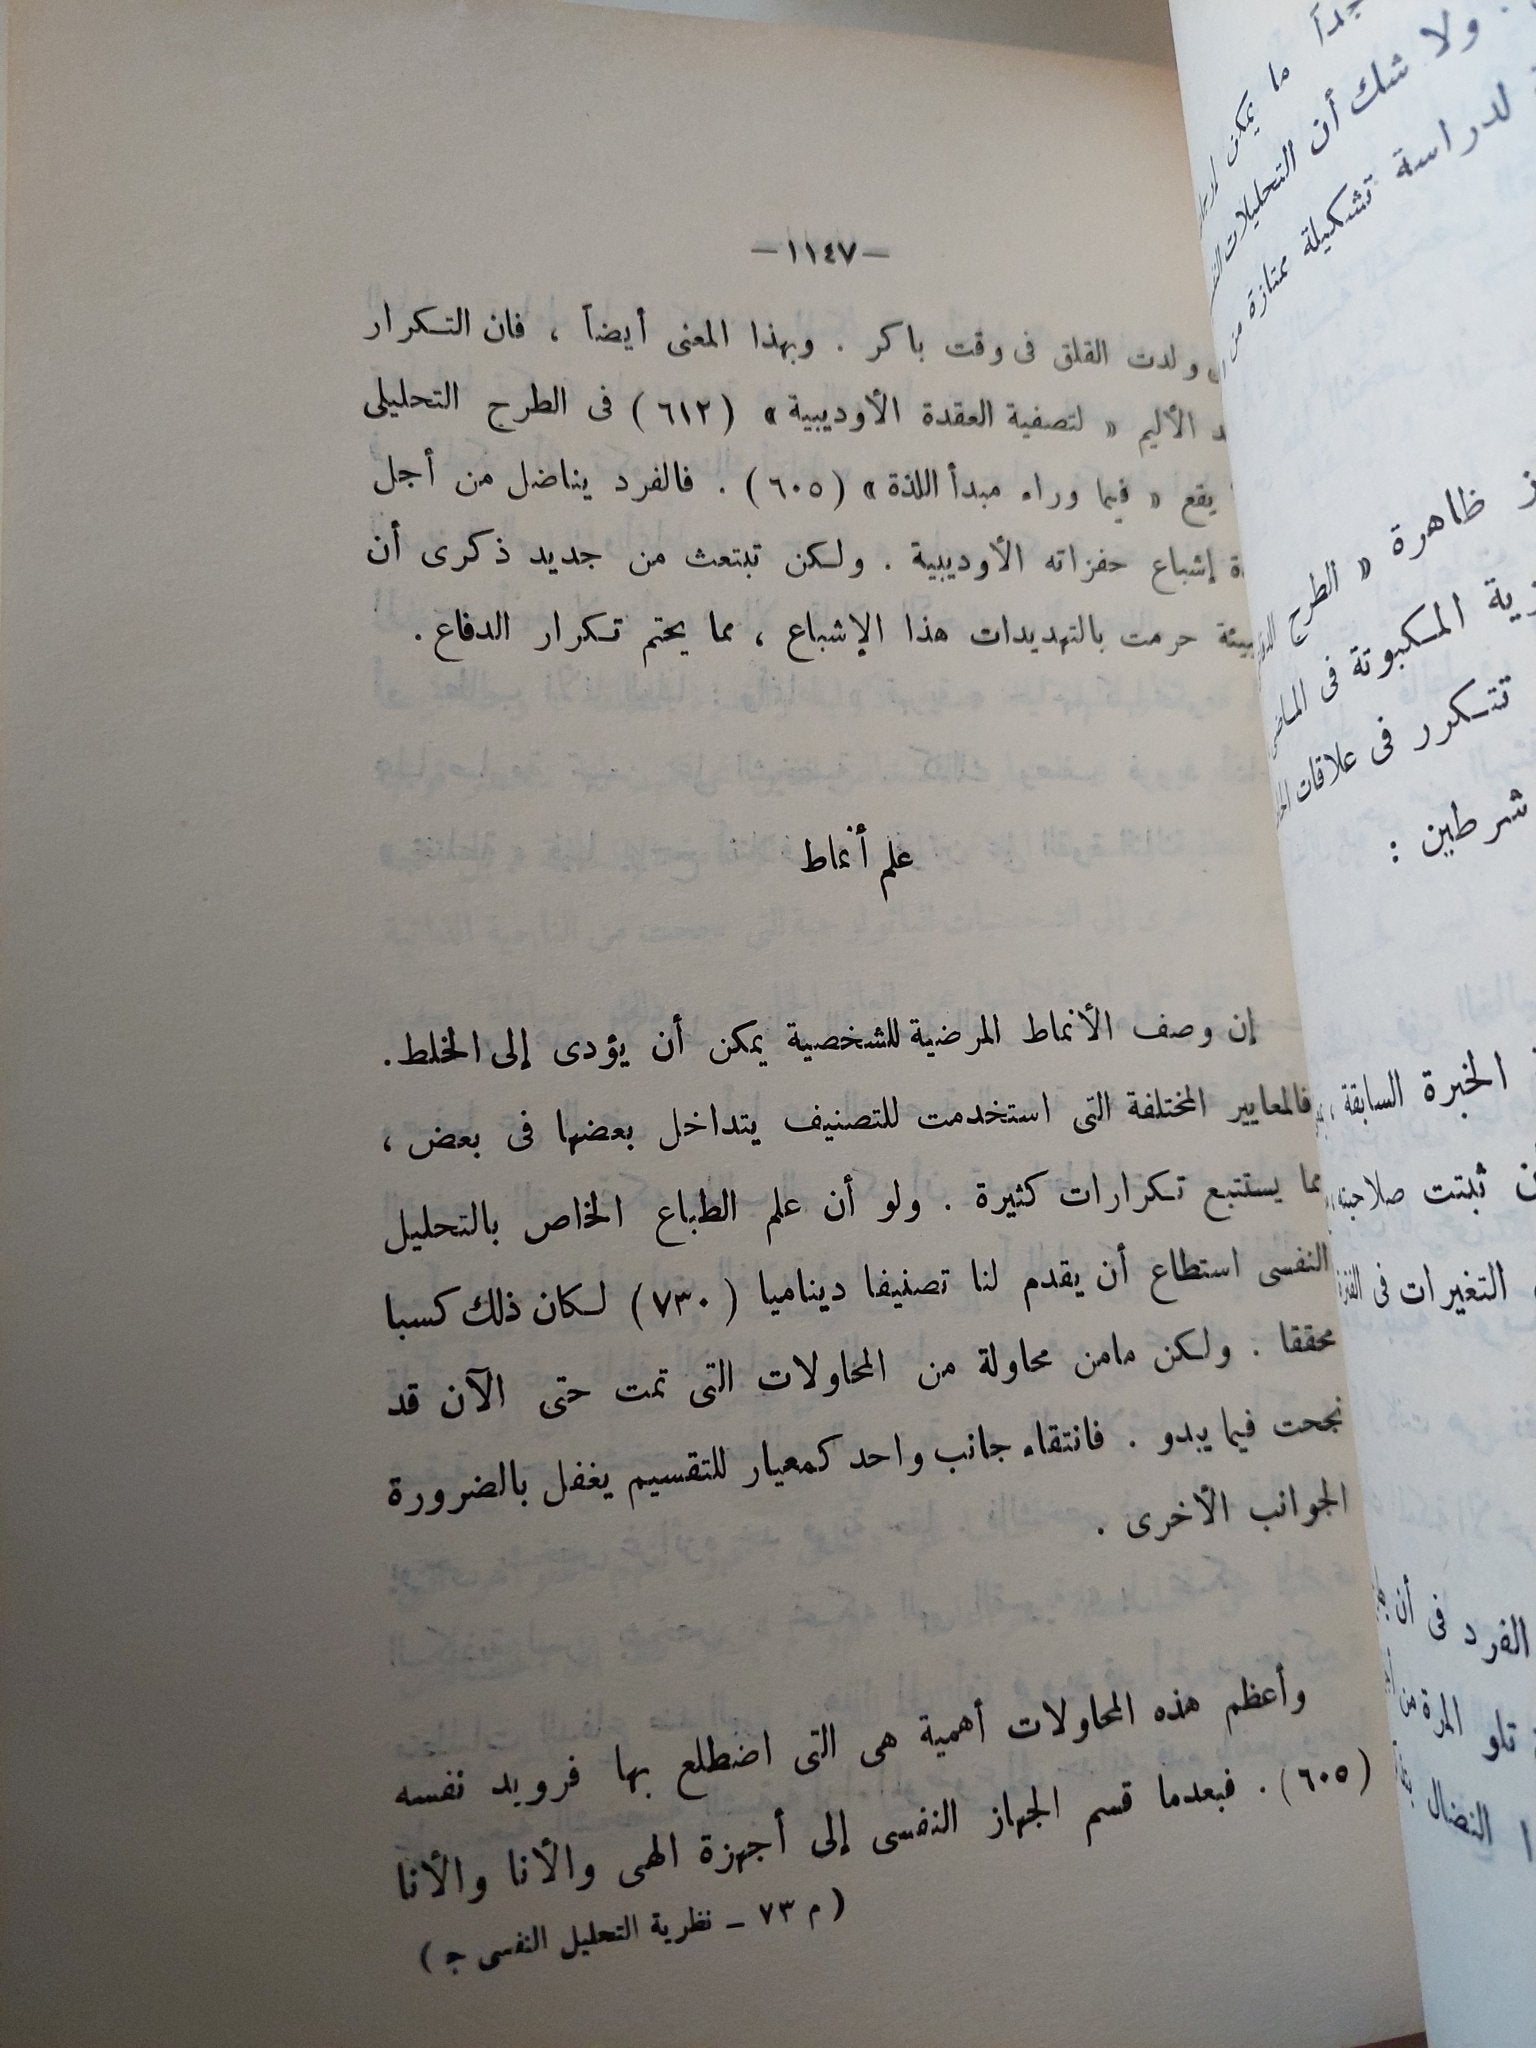 —١١٤٧—
ولدت القلق فى وقت باكر . وبهذا المعنى أيضاً ، فان التكرار
الأليم « لتصفية العقدة الأوديبية » (٦١٢) فى الطرح التحليلى
يقع « فيما وراء مبدأ اللذة » (٦٠٥) . فالفرد يناضل من أجل
إشباع حفزاته الأوديبية . ولكن تبتعث من جديد ذكرى أن
حرمت بالتهديدات هذا الإشباع ، مما يحتم تكرار الدفاع .
علم أنماط
إن وصف الأنماط المرضية للشخصية يمكن أن يؤدى إلى الخلط .
فالمعايير المختلفة التى استخدمت للتصنيف يتداخل بعضها فى بعض ،
مما يستتبع تكرارات كثيرة . ولو أن علم الطباع الخاص بالتحليل
النفسى استطاع أن يقدم لنا تصنيفا ديناميا (٧٣٠) لكان ذلك كسبا
محققا . ولكن مامن محاولة من المحاولات التى تمت حتى الآن قد
نجحت فيما يبدو . فانتقاء جانب واحد كمعيار للتقسيم يغفل بالضرورة
الجوانب الأخرى .
وأعظم هذه المحاولات أهمية هى التى اضطلع بها فرويد نفسه
(٦٠٥) . فبعدما قسم الجهاز النفسى إلى أجهزة الهى والأنا والأنا
( م ٧٣ ـ نظرية التحليل النفسى ج )
ما يمكن
ولا شك أن التحليلات
لدراسة تشكيلة ممتازة من
ظاهرة « الطرح
المكبوتة فى
تتكرر فى علاقات
شرطين :
الخبرة السابقة ،
ثبتت صلاحيته
التغيرات فى
الفرد فى أن
تلو المرة من
النضال